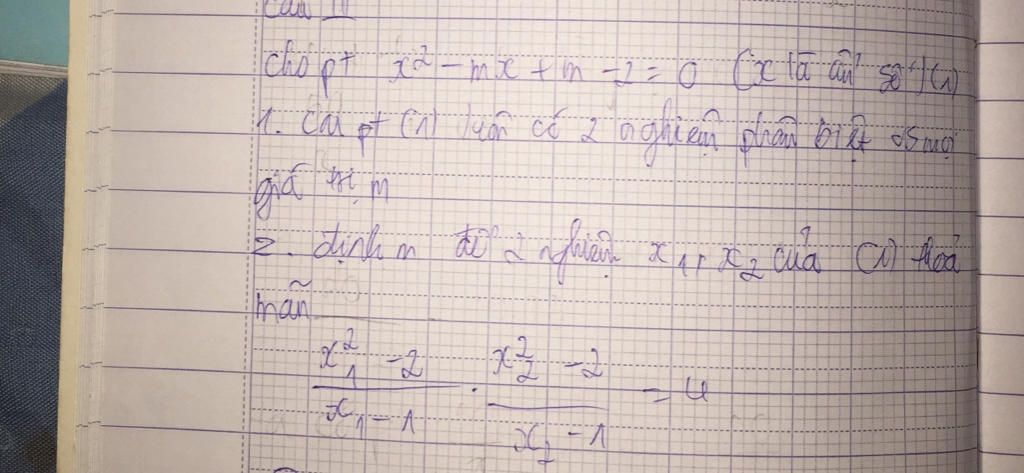 Câu IV
cho pt x² - mx + m - 2 = 0 (x là ẩn số) (1)
1. CM pt (1) luôn có 2 nghiệm phân biệt vs mọi
giá trị m
2. định m để 2 nghiệm x₁, x₂ của (1) thoả
mãn
(x₁² - 2)/(x₁ - 1) . (x₂² - 2)/(x₂ - 1) = 4